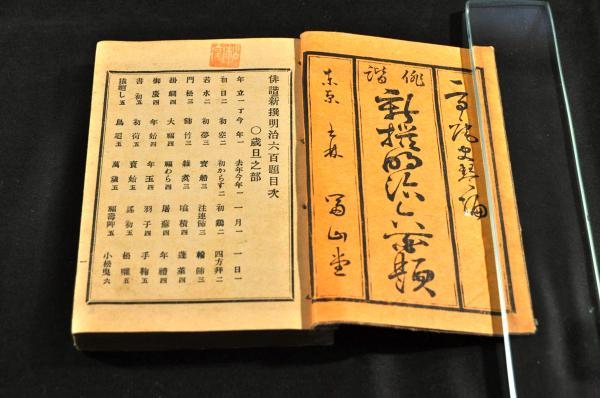 俳諧
新撰明治六百題
東京 書林 冨山堂
俳諧新撰明治六百題目次
○歳旦之部
年立一丁 今年一 去年今年一 一月一 一日一
初日二 初空二 初からす二 初鷄二 四方拜二
若水二 初夢三 寶船三 注連飾三 輪飾三
門松三 飾竹三 雜煮三 喰積四 蓬萊四
掛鯛四 大福四 福わら四 屠蘇四 年禮四
御慶四 年始四 年玉四 羽子四 手鞠五
書初五 初荷五 賣始五 謠初五 松囃五
猿廻し五 鳥追五 萬歳五 福壽艸五 小松曳六
一